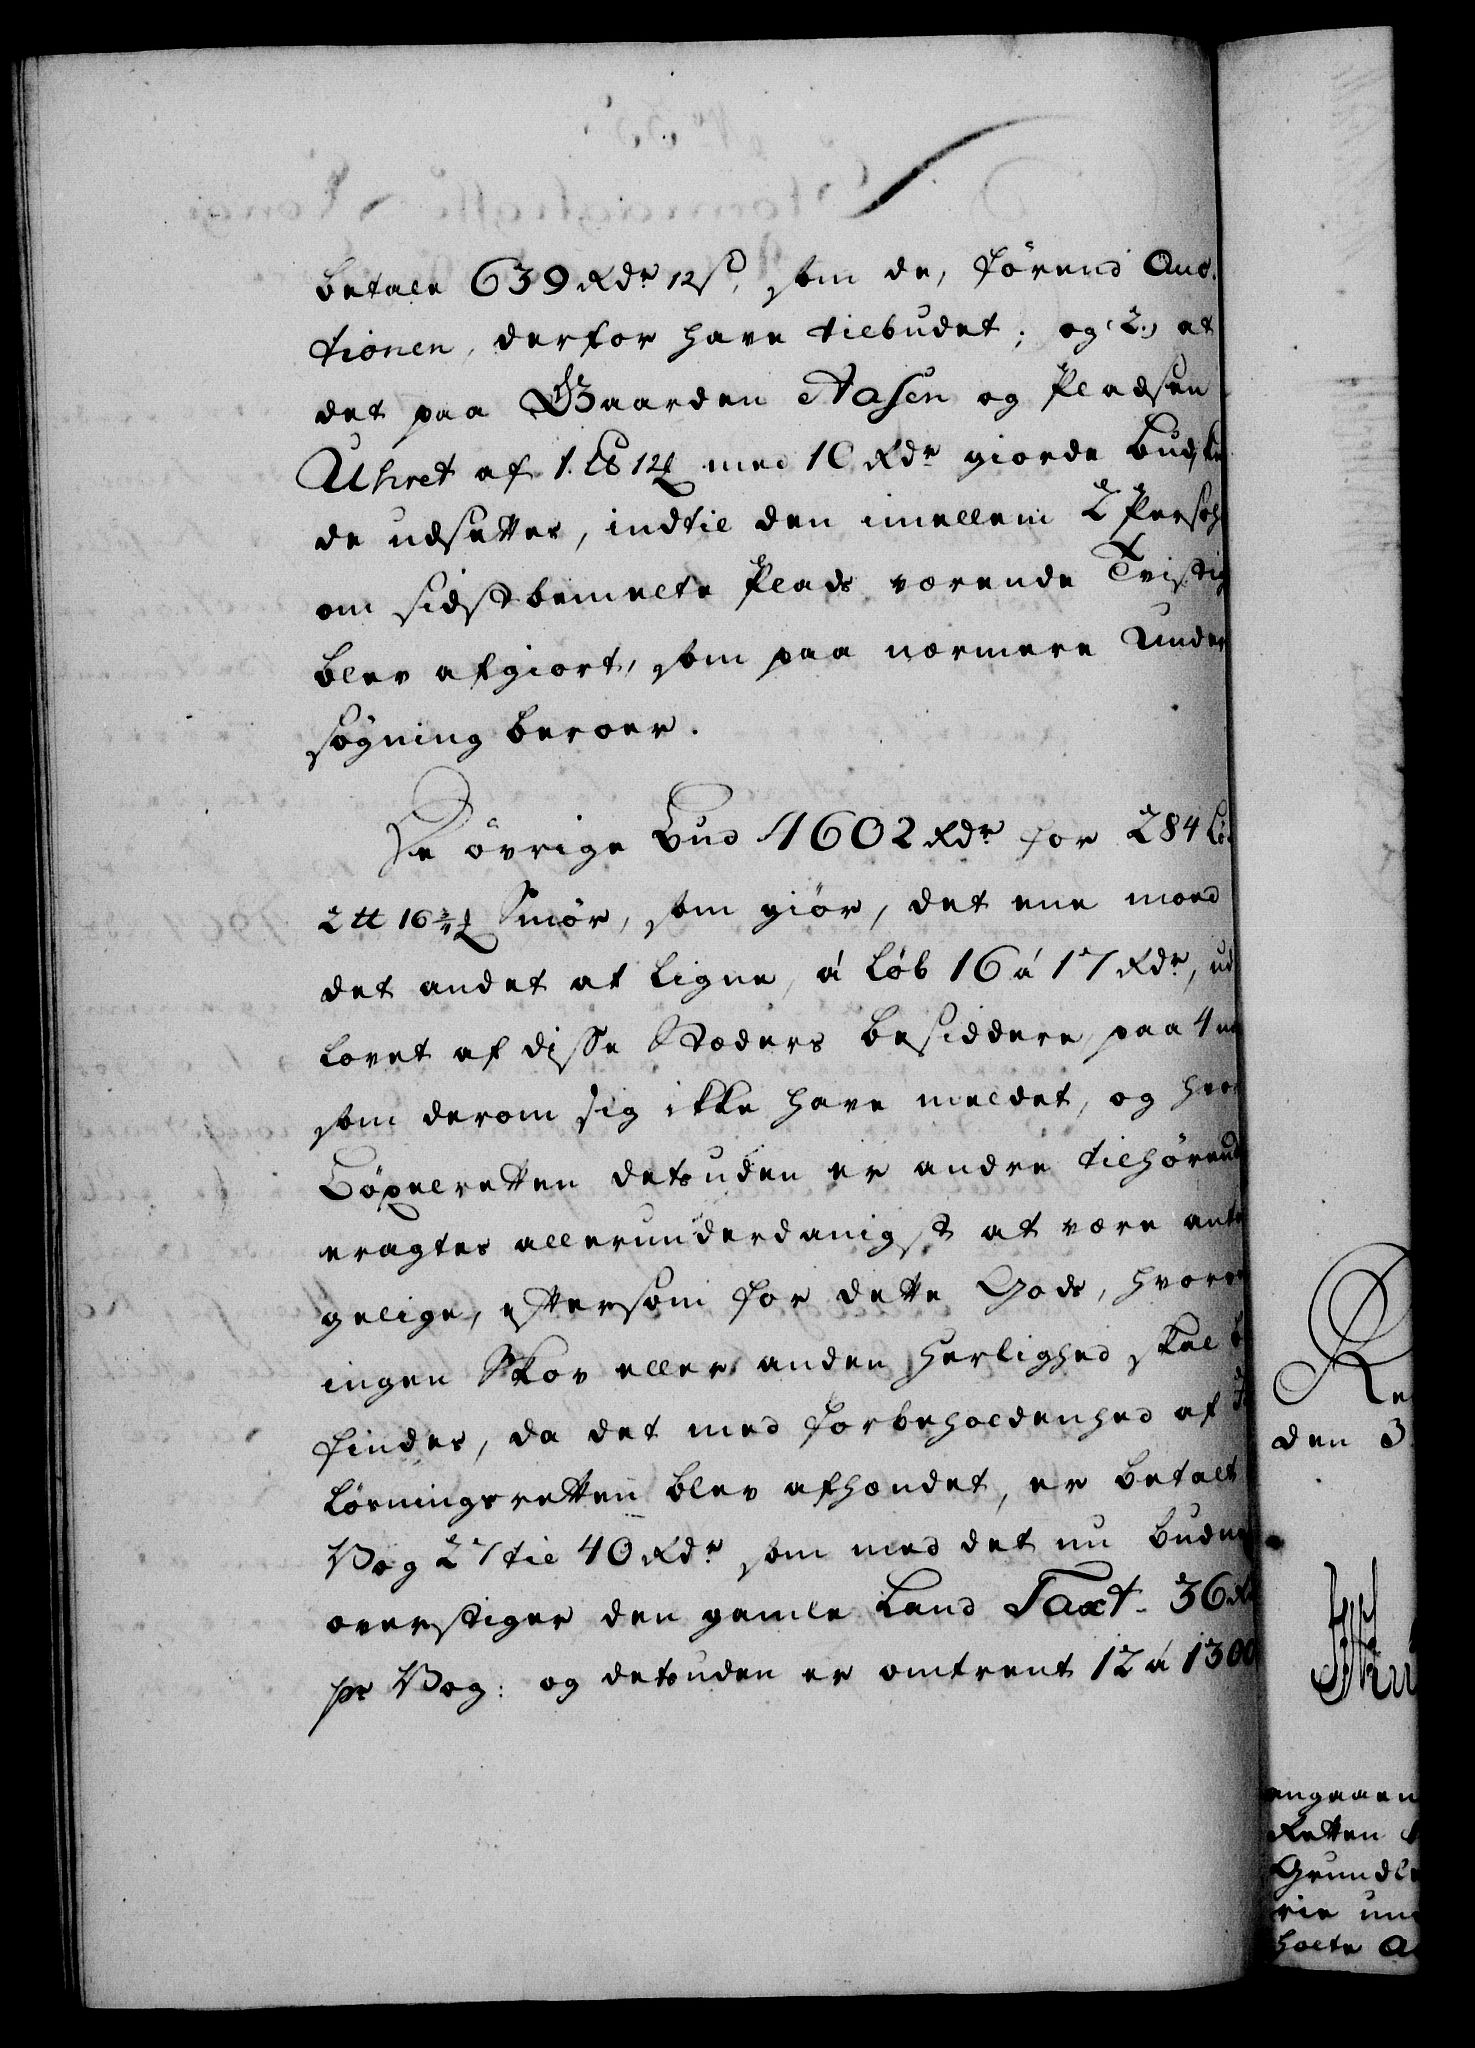 betale 639 Rdr 12 s, som de, førend Auc-
tionen, derfor have tilbudet; og 2.) at
det paa Gaarden Aasen og Pladsen
Uhret af 1. med 10 Rdr giorde Bud,
de udsættes, indtil den imellem 2
om sidstbemelte Plads værende
blev afgiort, som paa nærmere Under
søgning beroer.
De øvrige Bud 4602 Rdr for 284
2 16 3/4 Smør, som giør, det ene med
det andet at ligne, á Løb 16 á 17 Rdr, ud
lovet af disse Stæders besiddere paa
som derom sig ikke have meldet, og
Bøxelretten desuden er andre tilhørende
eragtes allerunderdanigst at være
gelige, eftersom for dette Gods,
ingen Skov eller anden Herlighed skal
findes, da det med forbeholdenhed af
løsningsretten blev afhændet, er betalt
Vog 27 til 40 Rdr som med det nu budne
overstiger den gamle Land Taxt. 36
pr Vog: og desuden er omtrent 12 á 1300

den 3
Retten